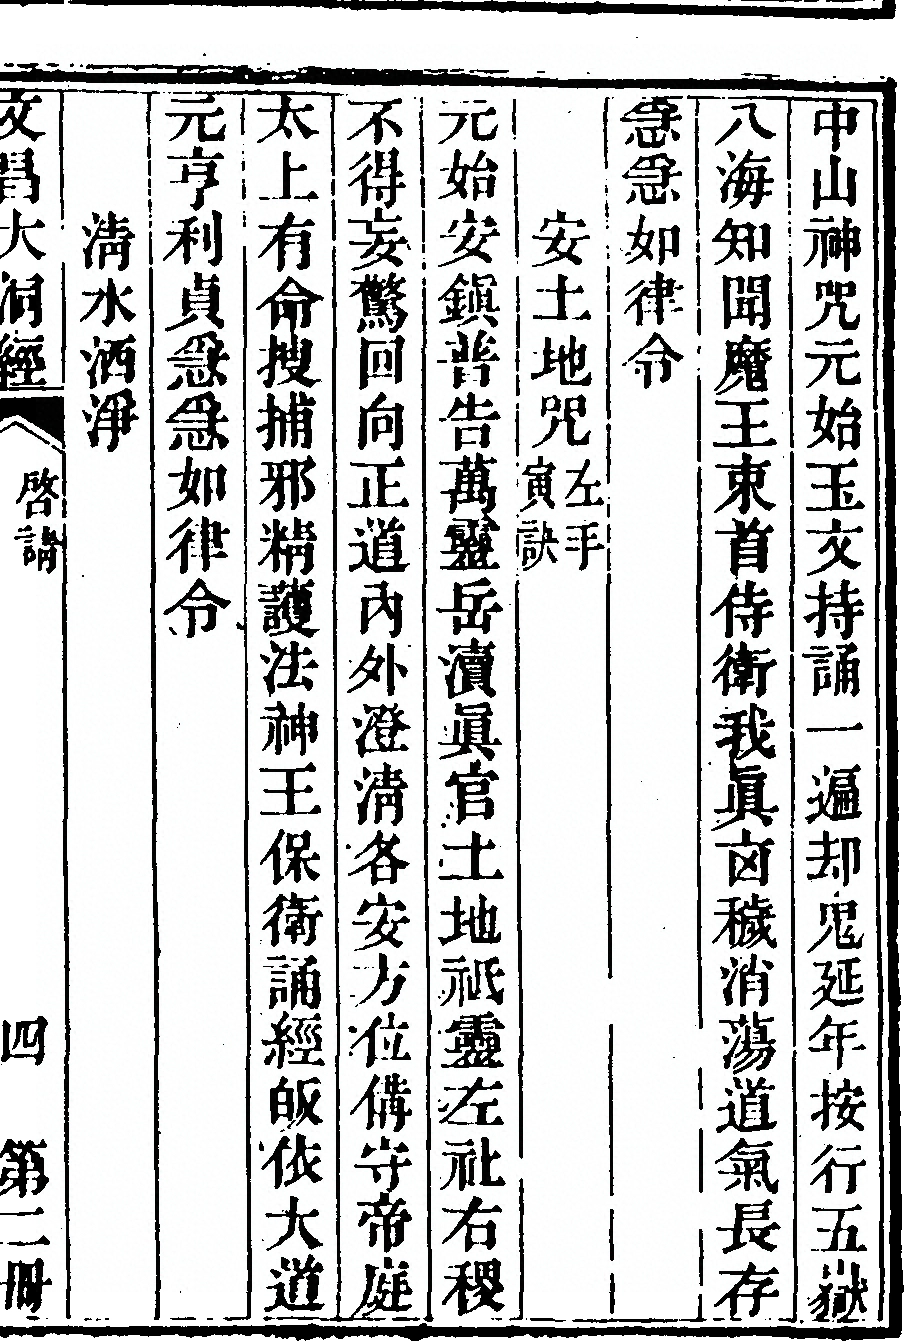 中山神咒元始玉文持誦一遍却鬼延年按行五嶽
八海知聞魔王束首侍衛我眞㐫穢消蕩道氣長存
急急如律令
安土地咒左手寅訣
元始安鎭普告萬靈岳瀆眞官土地祇靈左社右稷
不得妄驚回向正道內外澄淸各安方位俻守帝庭
太上有命搜捕邪精護法神王保衛誦經皈依大道
元亨利貞急急如律令
淸水洒淨
文昌大洞經 啓請 四 第二冊